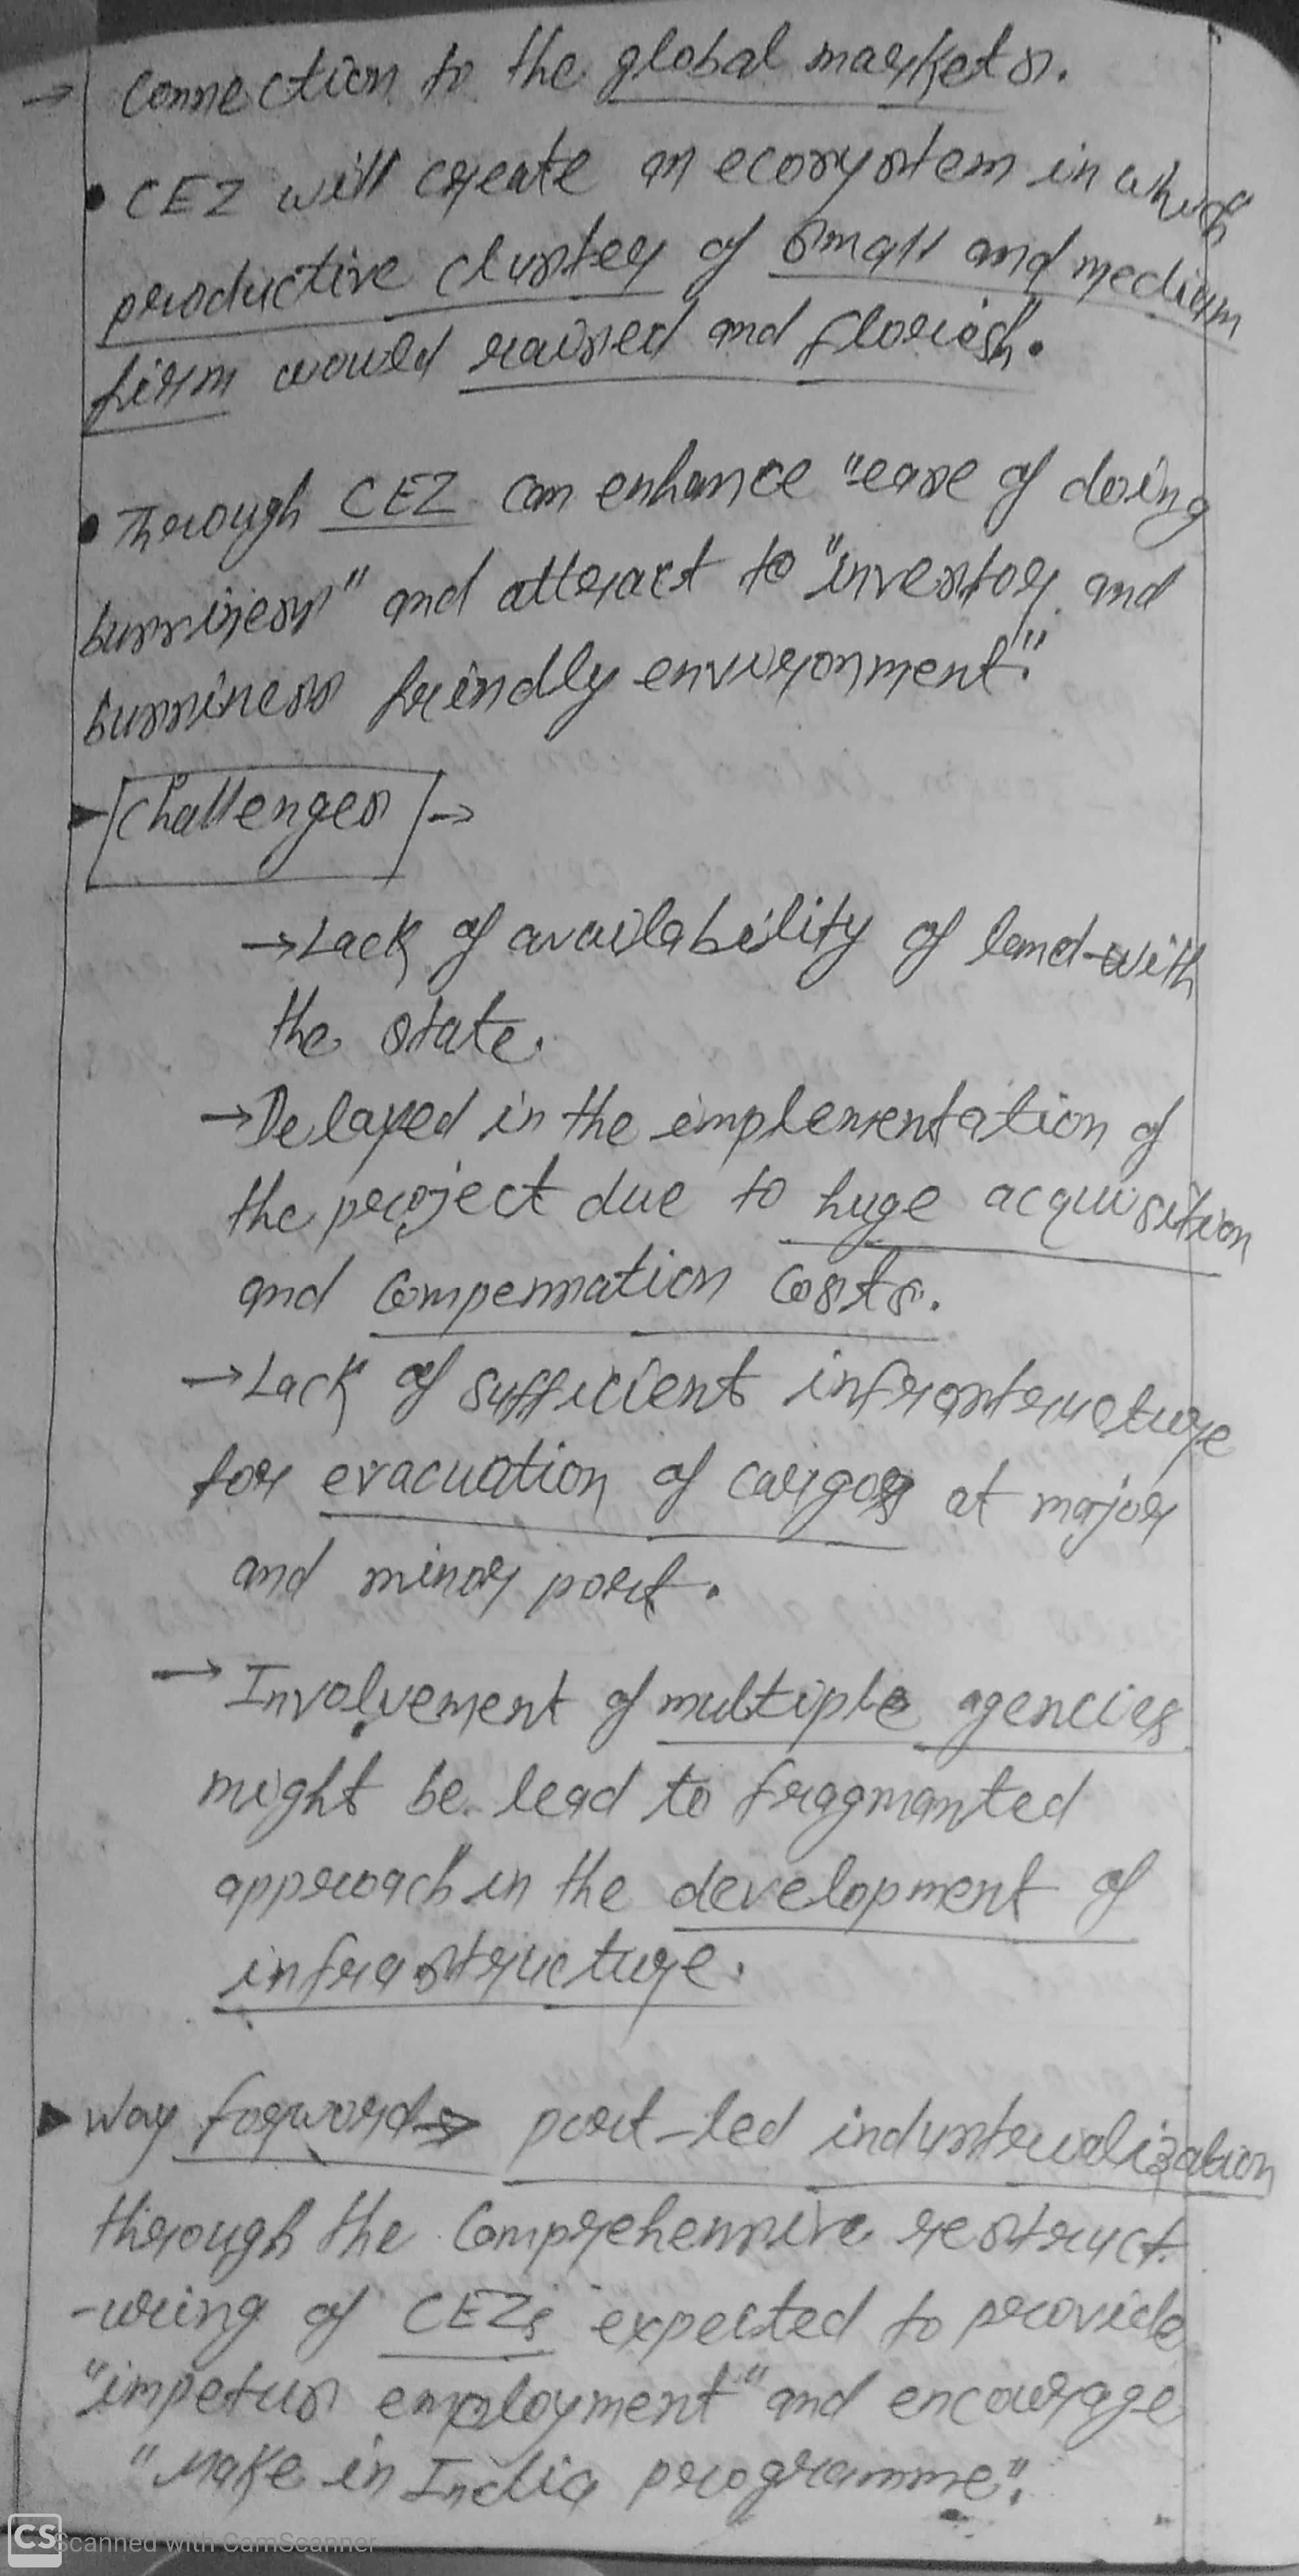 → Connection to the global markets.
• CEZ will create an ecosystem in which
productive cluster of small and medium
firm would raised and floriosh.
• Through CEZ can enhance "ease of doing
bussiness" and attract to "investor and
bussiness frindly environment."
▸ [Challenges] →
→ Lack of availability of land with
the state.
→ Delayed in the implementation of
the project due to huge acquisition
and compensation costs.
→ Lack of sufficient infrastructure
for evacuation of cargos at major
and minor port.
→ Involvement of multiple agencies
might be lead to fragmanted
approach in the development of
infrastructure.
▸ Way forword → port-led industrialization
through the comprehensive restruct
-uring of CEZs expected to provide
"impetus employment" and encourage
"Make in India programme".
CS Scanned with CamScanner